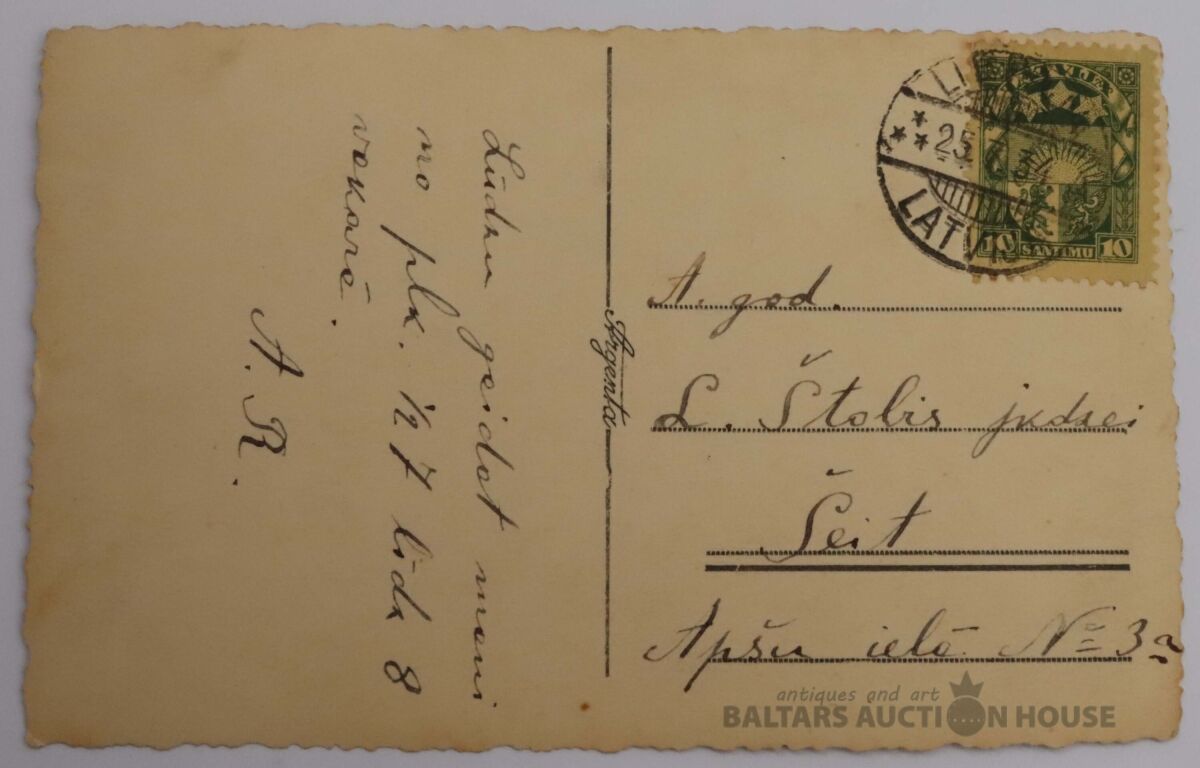 Lūdzu geidat mani
no plk. ½ 7 līdz 8
vakarā.
A. R.
Argenta
LATVIJA
25
LATVIJA
10 SANTIMU 10
A. god.
L. Štolis jkdzei
Šeit
Apšu ielā № 3a
antiques and art
BALTARS AUCTION HOUSE